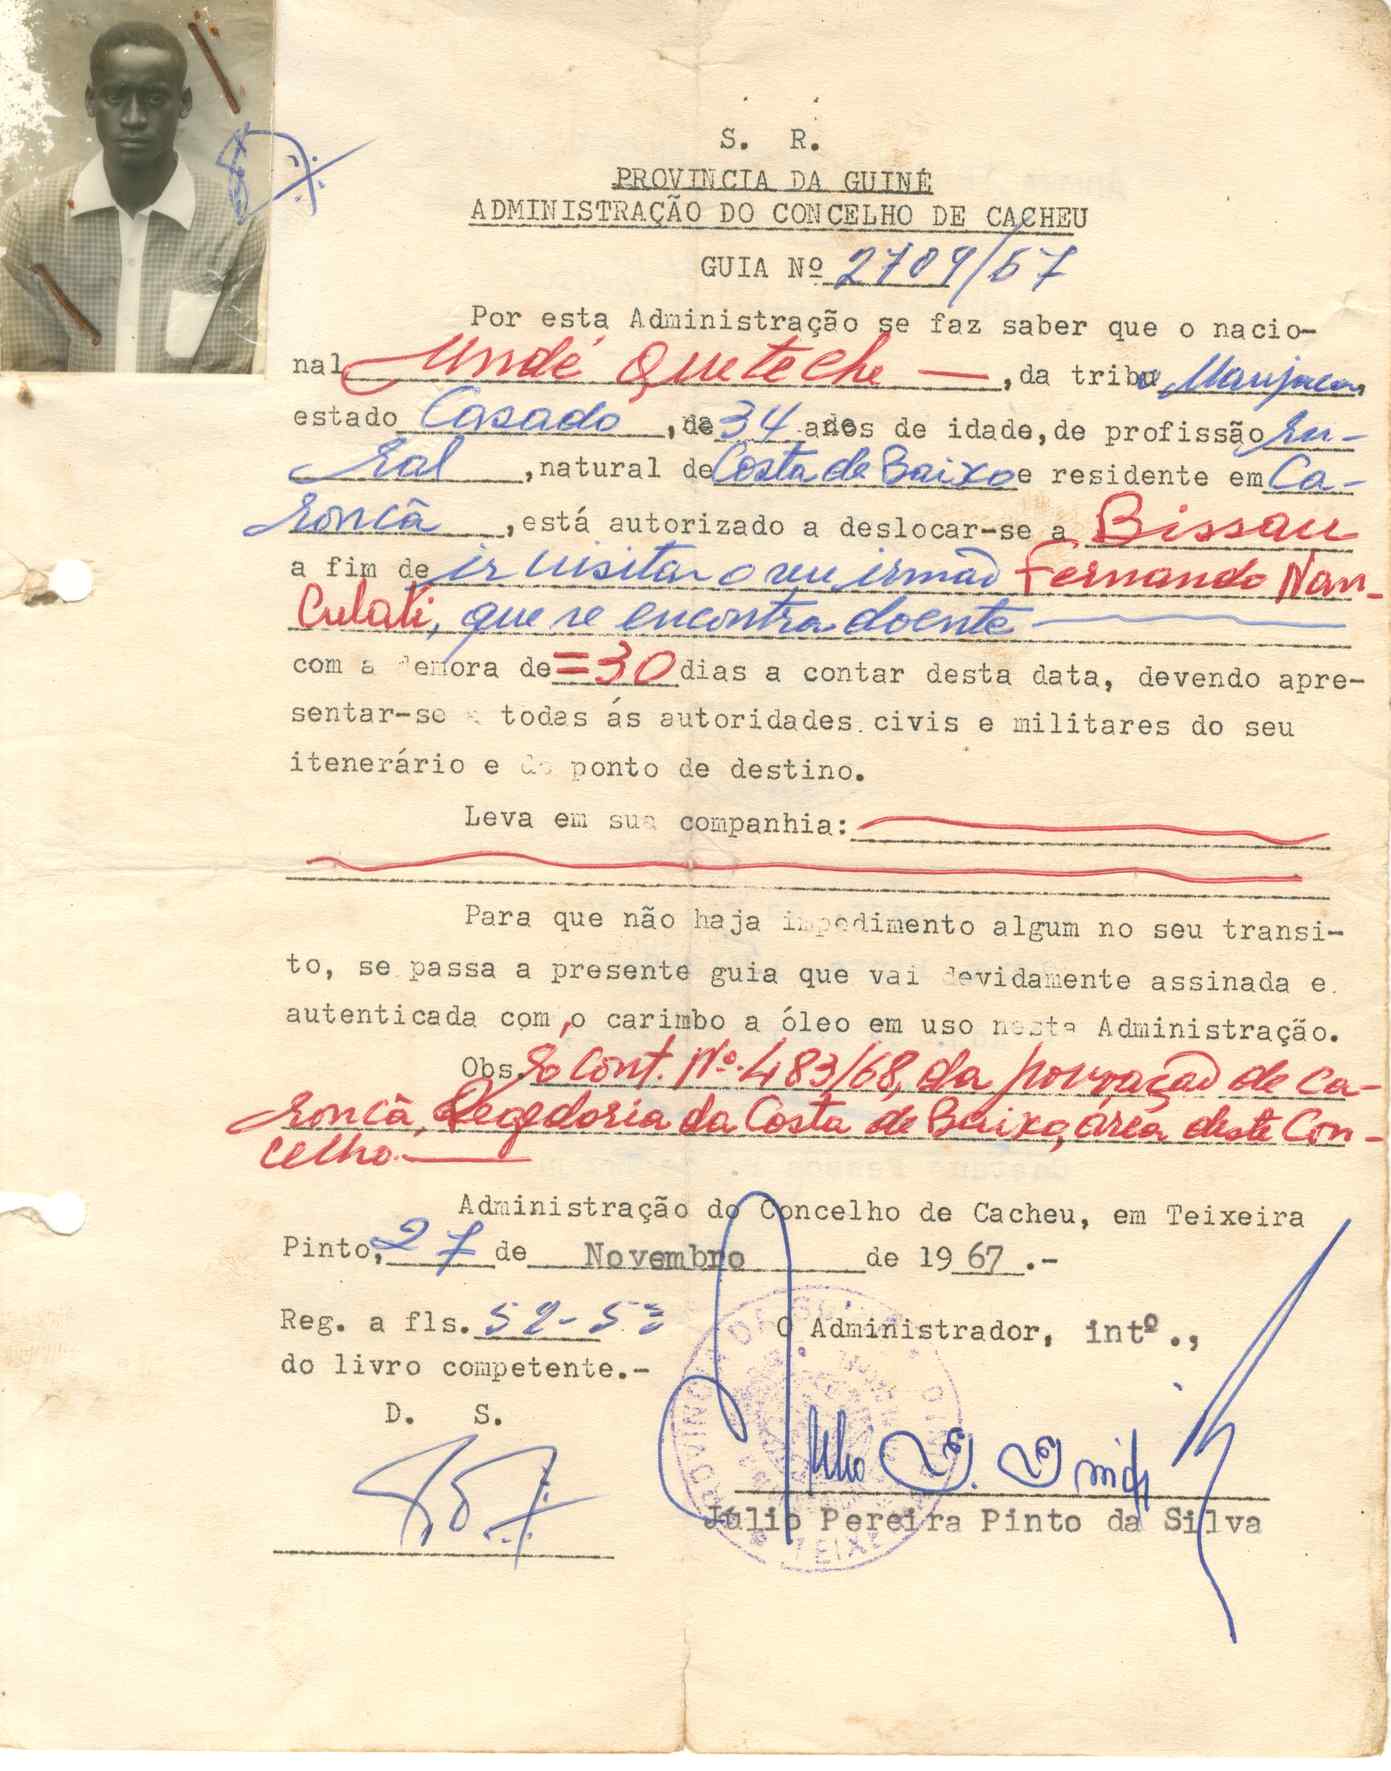 S. R.
PROVINCIA DA GUINÉ
ADMINISTRAÇÃO DO CONCELHO DE CACHEU
GUIA Nº 2709/67
Por esta Administração se faz saber que o nacio-
nal Undé Queteche, da tribu Manjaca,
estado Casado, de 34 anos de idade, de profissão ru-
ral, natural de Costa de Baixo e residente em Ca-
roncã, está autorizado a deslocar-se a Bissau
a fim de ir visitar o seu irmão Fernando Nan-
Culati, que se encontra doente
com a demora de =30 dias a contar desta data, devendo apre-
sentar-se a todas ás autoridades civis e militares do seu
itenerário e do ponto de destino.
Leva em sua companhia:
Para que não haja impedimento algum no seu transi-
to, se passa a presente guia que vai devidamente assinada e
autenticada com o carimbo a óleo em uso nesta Administração.
Obs. Cont. Nº. 483/68, da povoação de Ca-
roncã, Regedoria da Costa de Baixo, área deste Con-
celho.
Administração do Concelho de Cacheu, em Teixeira
Pinto, 27 de Novembro de 1967.-
Reg. a fls. 52-53
O Administrador, intº.,
do livro competente.-
D. S.
Júlio Pereira Pinto da Silva